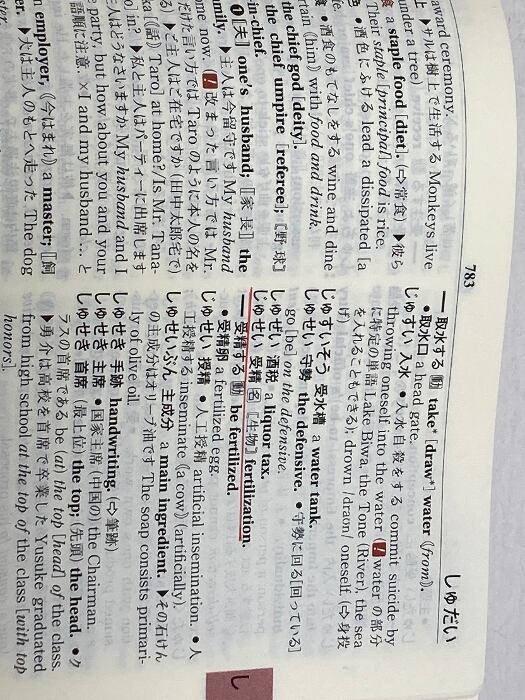 しゅだい
783
award ceremony.
上 ▶サルは樹上で生活する Monkeys live
under a tree)
食 a staple food [diet]. (⇨常食) ▶彼ら
Their staple [principal] food is rice.
色 ●酒色にふける lead a dissipated [a
fe.
食 ●酒食のもてなしをする wine and dine
rtain (him) with food and drink.
the chief god [deity].
the chief umpire [referee]; 〖野球〗
-in-chief.
❶〖夫〗 one's husband; 〖家長〗 the
mily. ▶主人は今留守です My husband
ome now. (! 改まった言い方では Mr.
だけた言い方では Taro のように本人の名を
る) ▶ご主人はご在宅ですか (田中太郎宅で)
ka [(話) Taro] at home?/Is Mr. Tana-
o] in? ▶私と主人はパーティーに出席します
人はどうなさいますか My husband and I
e party, but how about you and your
語順に注意. ×I and my husband ... と
n employer, 《今はまれ》 a master; 〖飼
er. ▶犬は主人のもとへ走った The dog
― 取水する 動 take* [draw*] water 《from》.
●取水口 a head gate.
じゅすい 入水 ●入水自殺をする commit suicide by
throwing oneself into the water (! water の部分
に特定の単語 Lake Biwa, the Tone (River), the sea
を入れることもできる), drown /dráun/ oneself. (⇨身投
げ)
じゅすいそう 受水槽 a water tank.
しゅせい 守勢 the defensive. ●守勢に回る[回っている]
go [be] on the defensive.
しゅぜい 酒税 a liquor tax.
じゅせい 受精 名 〖生物〗 fertilization.
― 受精する 動 be fertilized.
●受精卵 a fertilized egg.
じゅせい 授精 ●人工授精 artificial insemination. ●人
工授精する inseminate (a cow) (artificially).
しゅせいぶん 主成分 a main ingredient. ▶その石けん
の主成分はオリーブ油です The soap consists primari-
ly of olive oil.
しゅせき 手跡 handwriting. (⇨筆跡)
しゅせき 主席 ●国家主席 (中国の) the Chairman.
しゅせき 首席 (最上位) the top; (先頭) the head. ●ク
ラスの首席である be (at) the top [head] of the class.
▶勇介は高校を首席で卒業した Yusuke graduated
from high school at the top of the class [with top
honors].
し